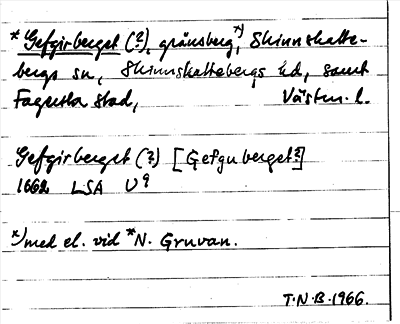 *Gefgirberget (?), gränsberg *), Skinnskatte-
bergs sn, Skinnskattebergs hd, samt
Fagersta stad, Västm. l.
Gefgirberget (?) [Gefguberget?]
1662 LSA U9
*) med el. vid *N. Gruvan.
T.N.B. 1966.